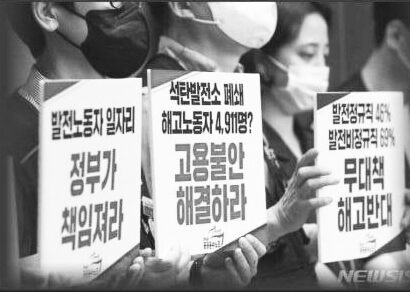 발전노동자 일자리
정부가
책임져라
석탄발전소 폐쇄
해고노동자 4,911명?
고용불안
해결하라
발전정규직 46%
발전비정규직 69%
무대책
해고반대
NEWSIS